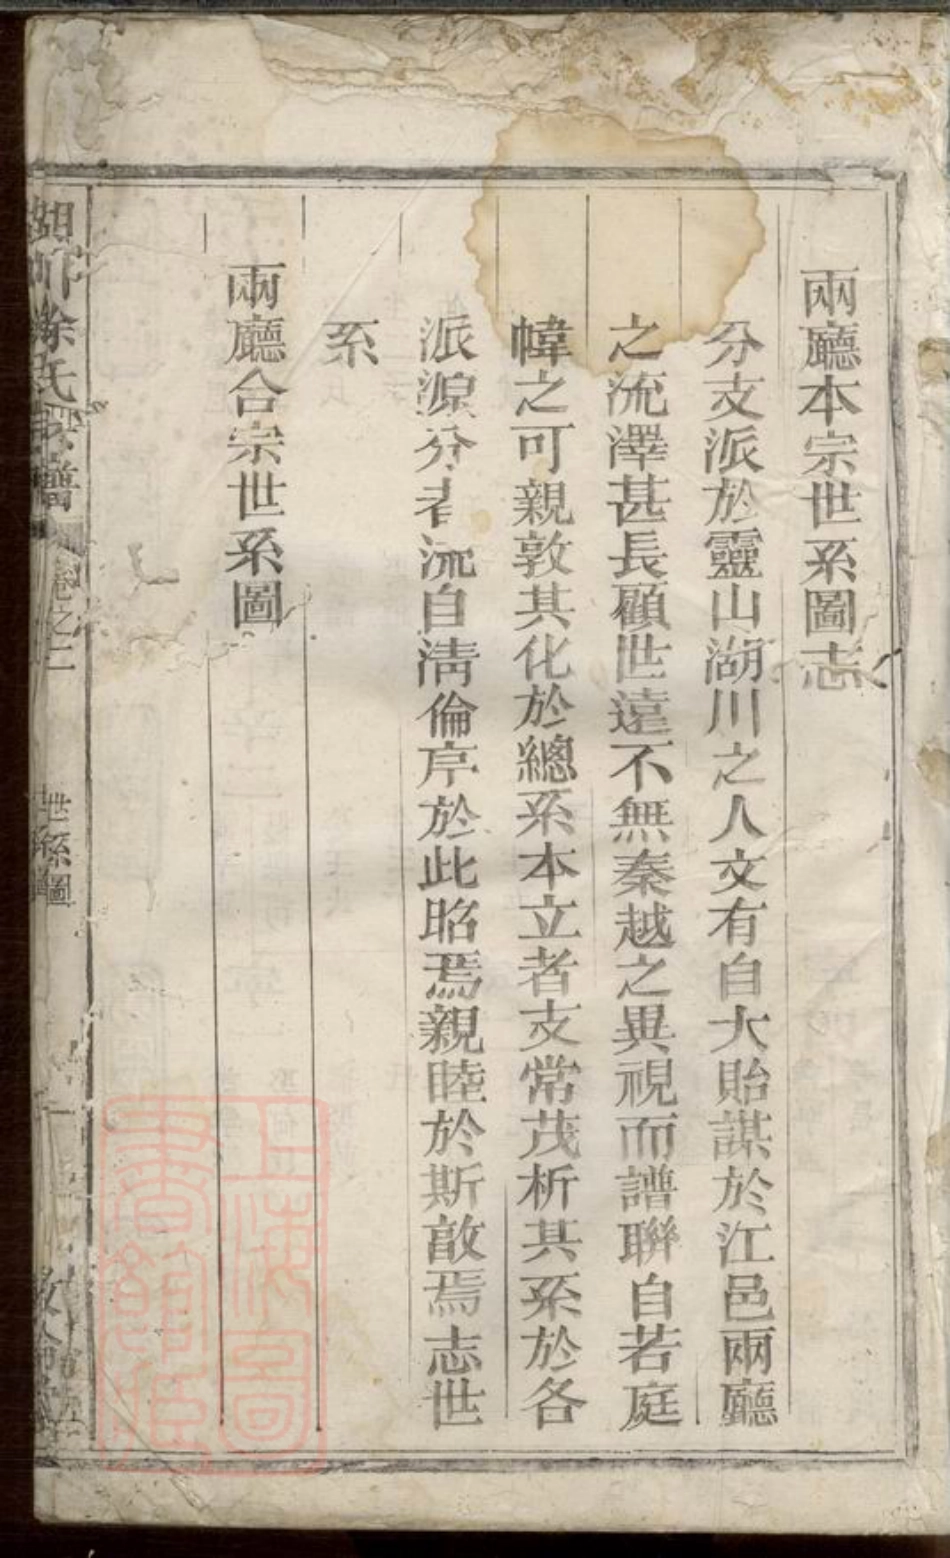 兩廳本宗世系圖志
分支派於靈山湖川之人文有自大貽謀於江邑兩廳
之流澤甚長顧世遠不無秦越之異視而譜聯自若庭
幃之可親敦其化於總系本立者支常茂析其系於各
派源分者流自清倫序於此昭焉親睦於斯敢焉志世
系
兩廳合宗世系圖
湖川徐氏宗譜
卷之二
世系圖
上海圖書館藏